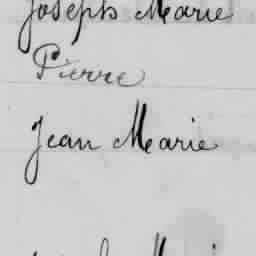 Joseph Marie
Pierre
Jean Marie